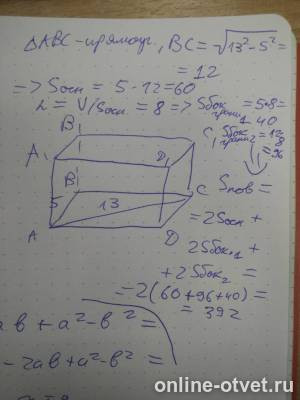 △ABC - прямоуг., BC = √13² - 5² =
= 12
=> Sосн = 5 · 12 = 60
= V/Sосн = 8 => Sбок грани1 = 5 * 8 =
40
Sбок грани2 = 12 * 8
= 96
B1
A1
D1
C1
B
5
13
C
A
D
Sпов =
= 2Sосн +
2Sбок1 +
+ 2Sбок2 =
= 2(60 + 96 + 40) =
= 392
ab + a² - b² =
- 2ab + a² - b² =
online-otvet.ru